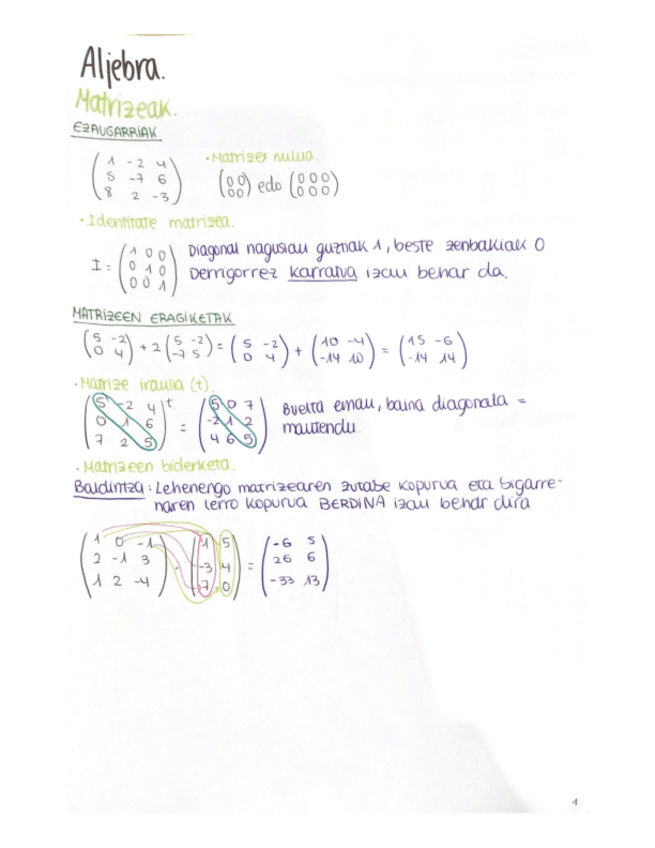 Aljebra.
Matrizeak.
EZAUGARRIAK
(1 -2 4 / 5 -7 6 / 8 2 -3)
· Matrizer nulua.
(0 0 / 0 0) edo (0 0 0 / 0 0 0)
· Identitate matrizea.
I = (1 0 0 / 0 1 0 / 0 0 1)
Diagonal nagusian guztiak 1, beste zenbakiak 0
Derrigorrez karratua izan behar da.
MATRIZEEN ERAGIKETAK
(5 -2 / 0 4) + 2 (5 -2 / -7 5) = (5 -2 / 0 4) + (10 -4 / -14 10) = (15 -6 / -14 14)
· Matrize iraulia (t).
(5 -2 4 / 0 1 6 / 7 2 5)t = (5 0 7 / -2 1 2 / 4 6 5)
Buelta eman, baina diagonala =
mantendu.
· Matrizeen biderketa.
Baldintza: Lehenengo matrizearen zutabe kopurua eta bigarre-
naren lerro kopurua BERDINA izan behar dira
(1 0 -1 / 2 -1 3 / 1 2 -4) · (1 5 / -3 4 / 7 0) = (-6 5 / 26 6 / -33 13)
1